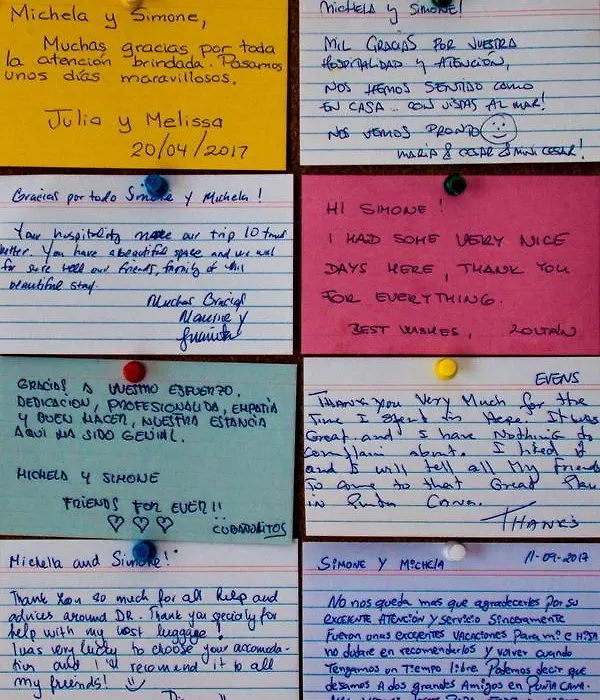 Michela y Simone,
Muchas gracias por toda
la atención brindada. Pasamos
unos dias maravillosos.
Julia y Melissa
20/04/2017
Michela y Simone!
MIL GRACIAS POR VUESTRA
HOSPITALIDAD Y ATENCIÓN,
NOS HEMOS SENTIDO COMO
EN CASA... CON VISTAS AL MAR!
NOS VEMOS PRONTO
MARIA & CESAR & MINI CESAR!
Gracias por todo Simone y Michela!
Your hospitality make our trip 10 times
better. You have a beautiful space and we will
for sure tell our friends, family of this
beautiful stay.
Muchas Gracias
Maurice y
HI SIMONE!
I HAD SOME VERY NICE
DAYS HERE, THANK YOU
FOR EVERYTHING.
BEST WISHES, ZOLTÁN
GRACIAS A VUESTRO ESFUERZO,
DEDICACION, PROFESIONALIDA, EMPATÍA
Y BUEN HACER, NUESTRA ESTANCIA
AQUI HA SIDO GENIAL.
MICHELA Y SIMONE
FRIENDS FOR EVER!!
CUBANALITOS
EVENS
Thank you Very Much for the
Time I Spent in Here. It was
Great and I have Nothing to
complain about. I liked it
and I will tell all My Friends
To come to that Great Place
in Punta Cana.
THANKS
Michella and Simone!
Thank you so much for all help and
advices around DR. Thank you specialy for
help with my lost luggage!
I was very lucky to choose your accomoda-
tion and I'll recomend it to all
my friends!
SIMONE Y MICHELA
11-09-2017
No nos queda mas que agradecerles por su
EXCELENTE ATENCIÓN y servicio sinceramente
Fueron unas excelentes VACACIONES PARA mi e HIJA
no dudare en recomendarlos y volver cuando
Tengamos un Tiempo libre. Podemos decir que
dejamos A dos grandes Amigos en PUNTA CANA.